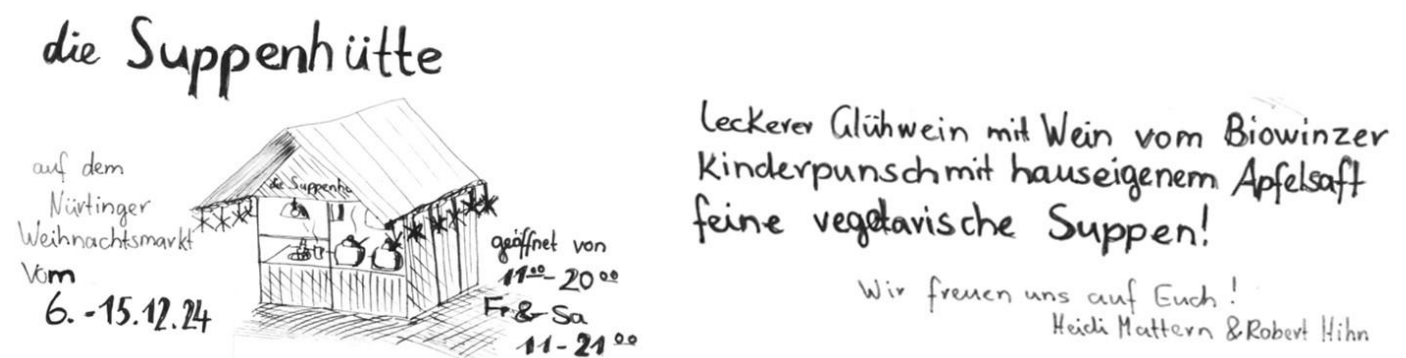 die Suppenhütte
auf dem
Nürtinger
Weihnachtsmarkt
vom
6.-15.12.24
die Suppenhü
geöffnet von
11⁰⁰-20⁰⁰
Fr & Sa
11-21⁰⁰
leckerer Glühwein mit Wein vom Biowinzer
Kinderpunsch mit hauseigenem Apfelsaft
feine vegetarische Suppen!
Wir freuen uns auf Euch!
Heidi Mattern & Robert Hihn